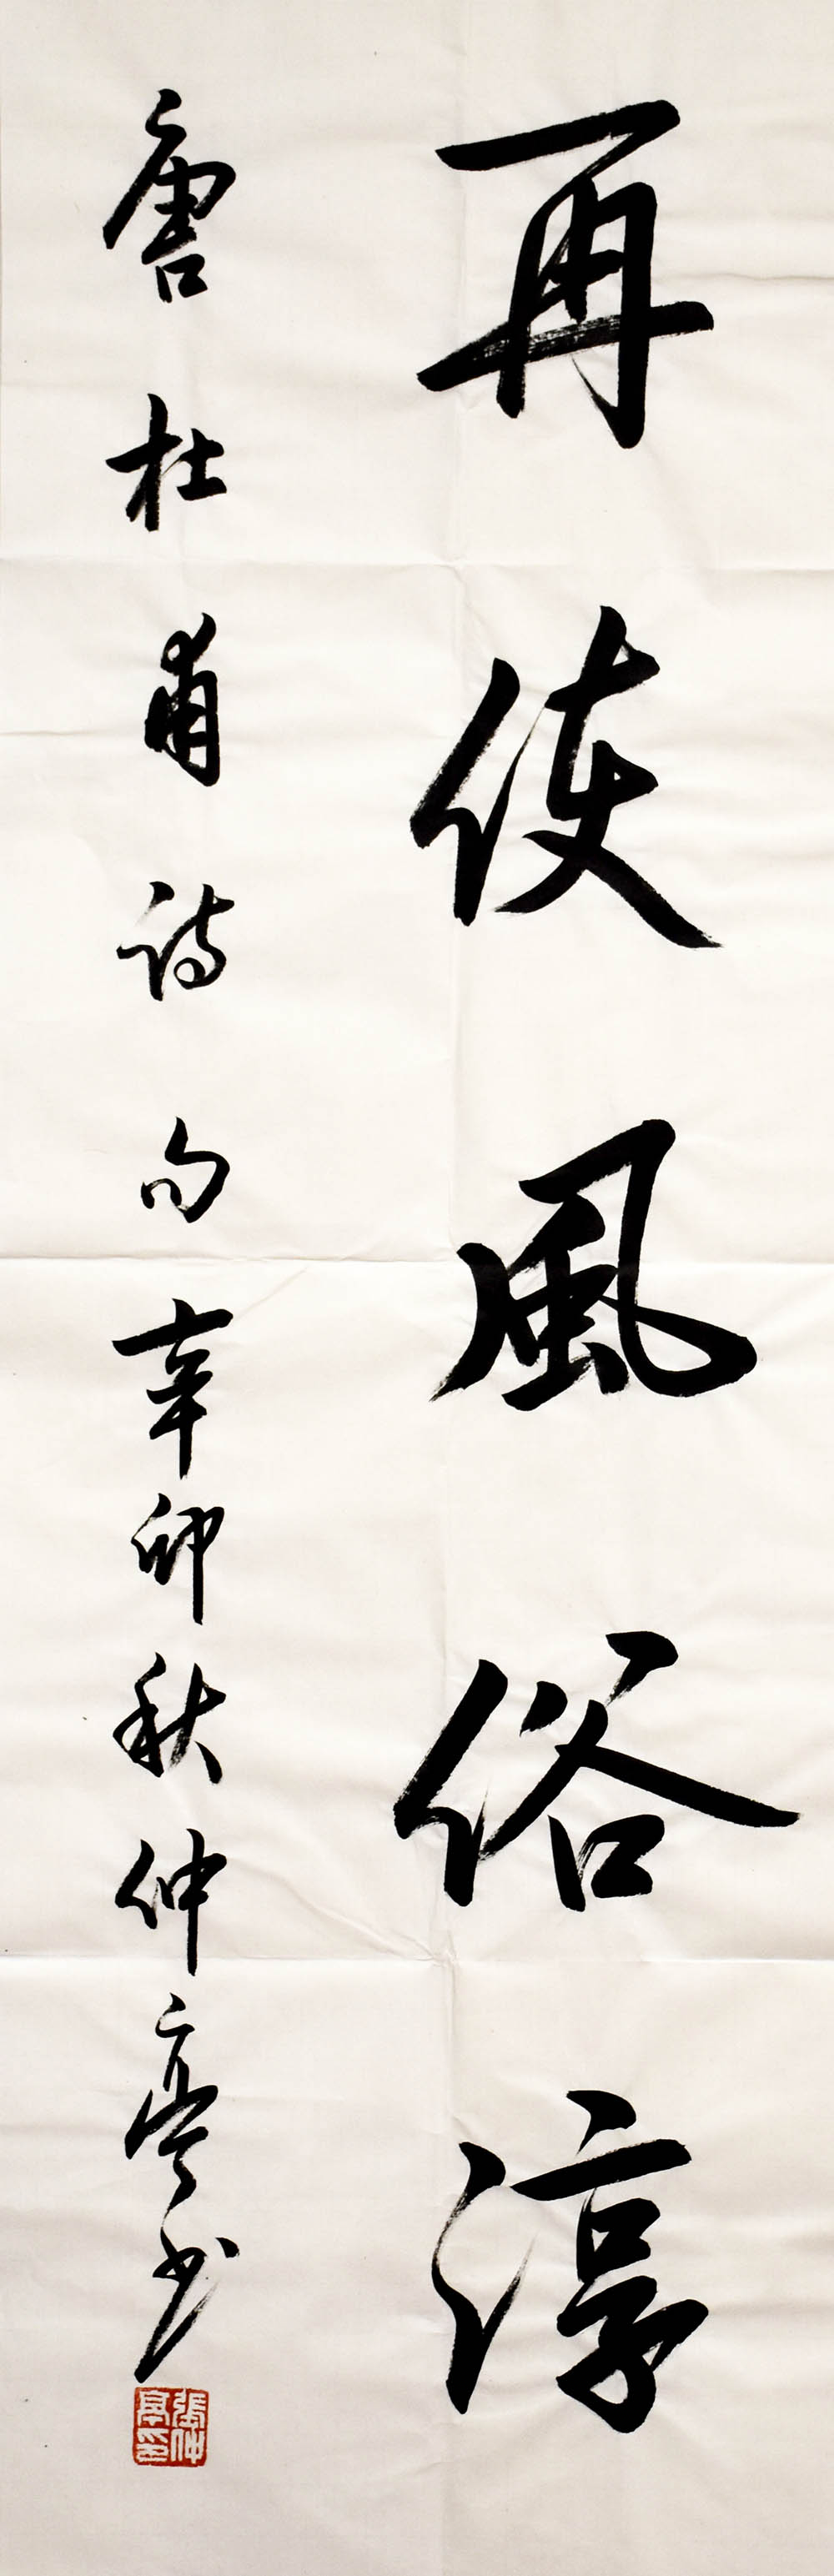 再使風俗淳
唐杜甫诗句辛卯秋仲亭书
張仲亭印